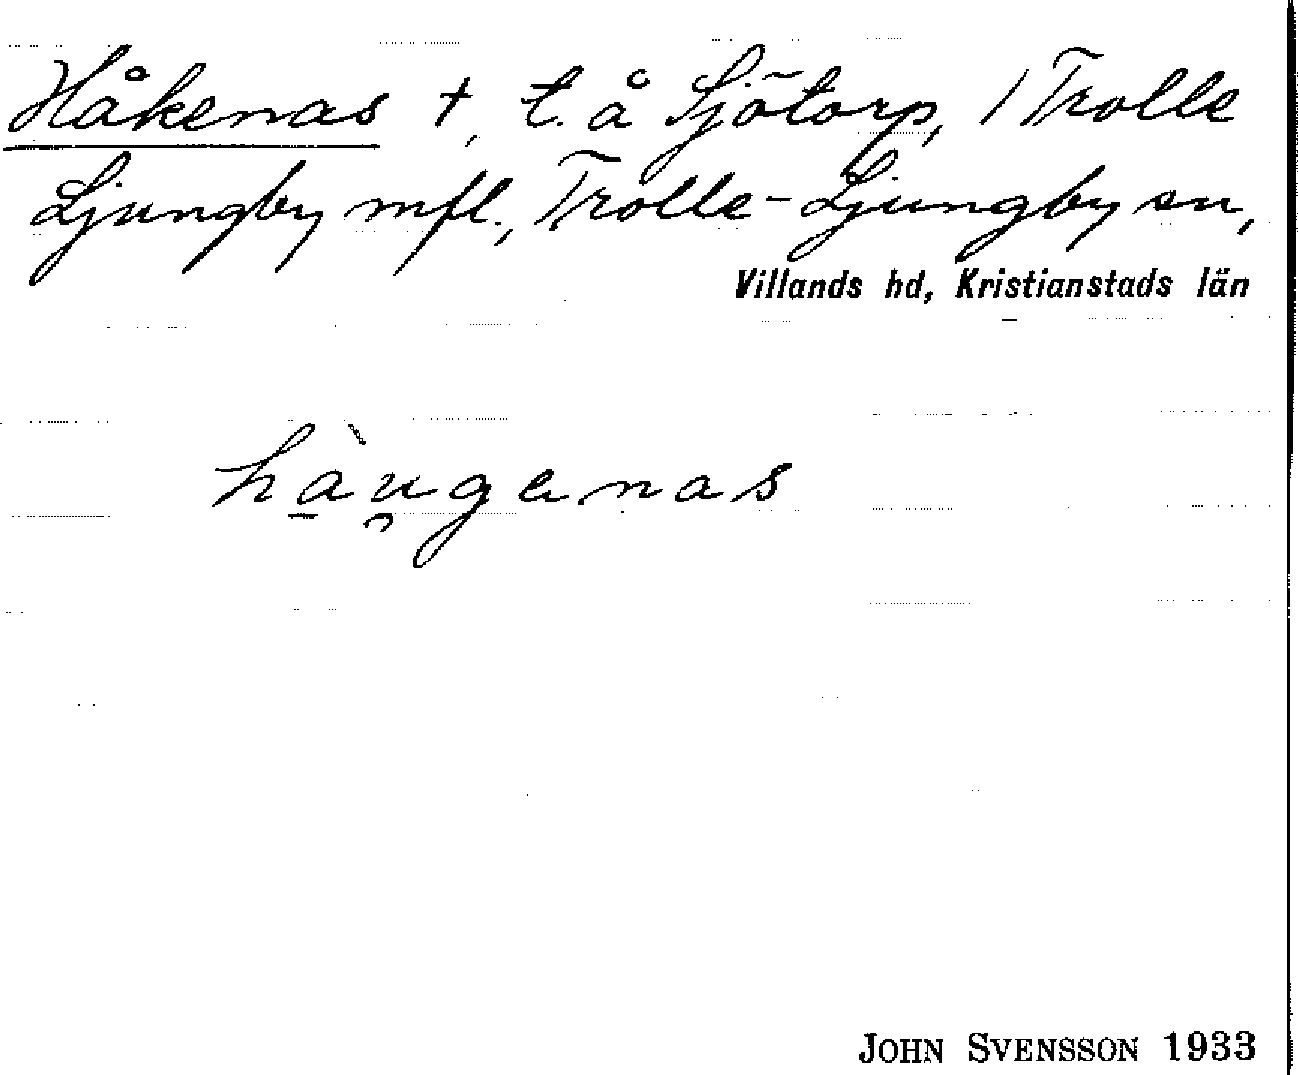 Håkenas †, t. å Sjötorp, 1 Trolle
Ljungby mfl., Trolle-Ljungby sn,
Villands hd, Kristianstads län
ha̱ù̯genas
JOHN SVENSSON 1933